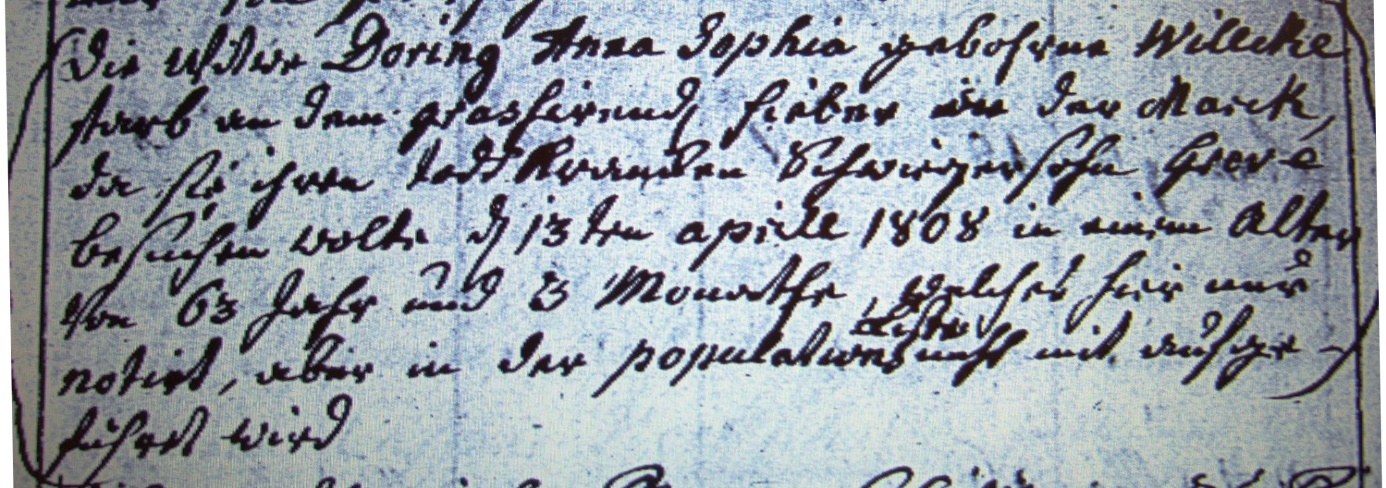 Die Witwe Döring Anna Sophia gebohrne Willcke
starb an dem grassirend fieber in der Marck,
da sie ihren todtkrancken Schwiegersohn
besuchen wolte d 13ten aprill 1808 in einem Alter
von 63 Jahr und 3 Monathe, welches hier nur
notirt, aber in der populations Liste nicht mit aufge-
führet wird